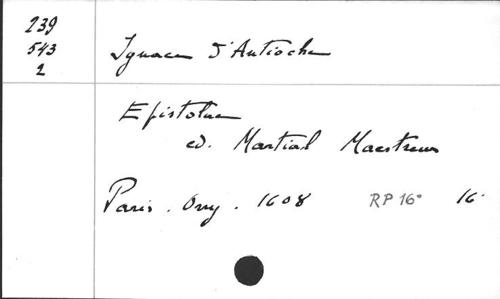 239
543
2
Ignace d'Antioche
Epistolae
ed. Martial Maestreus
Paris. Orry. 1608 RP 16° 16°